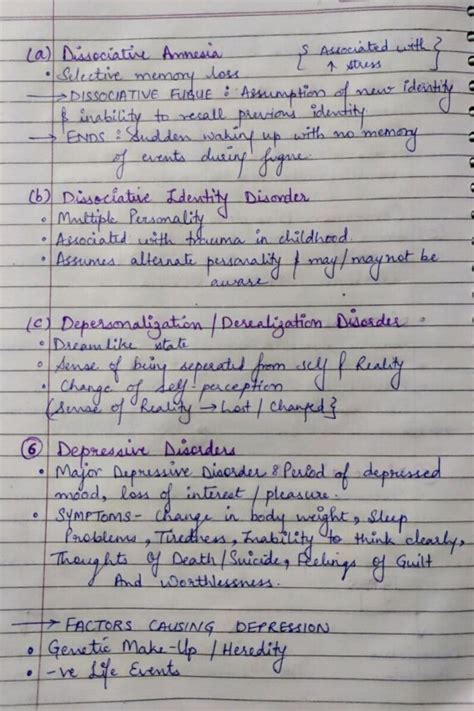 (a) Dissociative Amnesia { S Associated with }
• Selective memory loss ↑ stress
→ DISSOCIATIVE FUGUE : Assumption of new identity
& inability to recall previous identity
→ ENDS : Sudden waking up with no memory
of events during fugue.
(b) Dissociative Identity Disorder
• Multiple Personality
• Associated with trauma in childhood.
• Assumes alternate personality & may/may not be
aware.
(c) Depersonalization / Derealization Disorder
• Dreamlike state
• Sense of being seperated from self & Reality
• Change of self perception
{Sense of Reality → Lost / Changed}
⑥ Depressive Disorders
• Major Depressive Disorder : Period of depressed
mood, loss of interest / pleasure.
• SYMPTOMS - Change in body weight, Sleep
Problems, Tiredness, Inability to think clearly,
Thoughts Of Death/Suicide, Feelings of Guilt
And Worthlessness.
→ FACTORS CAUSING DEPRESSION
• Genetic Make-Up / Heredity
• -ve Life Events